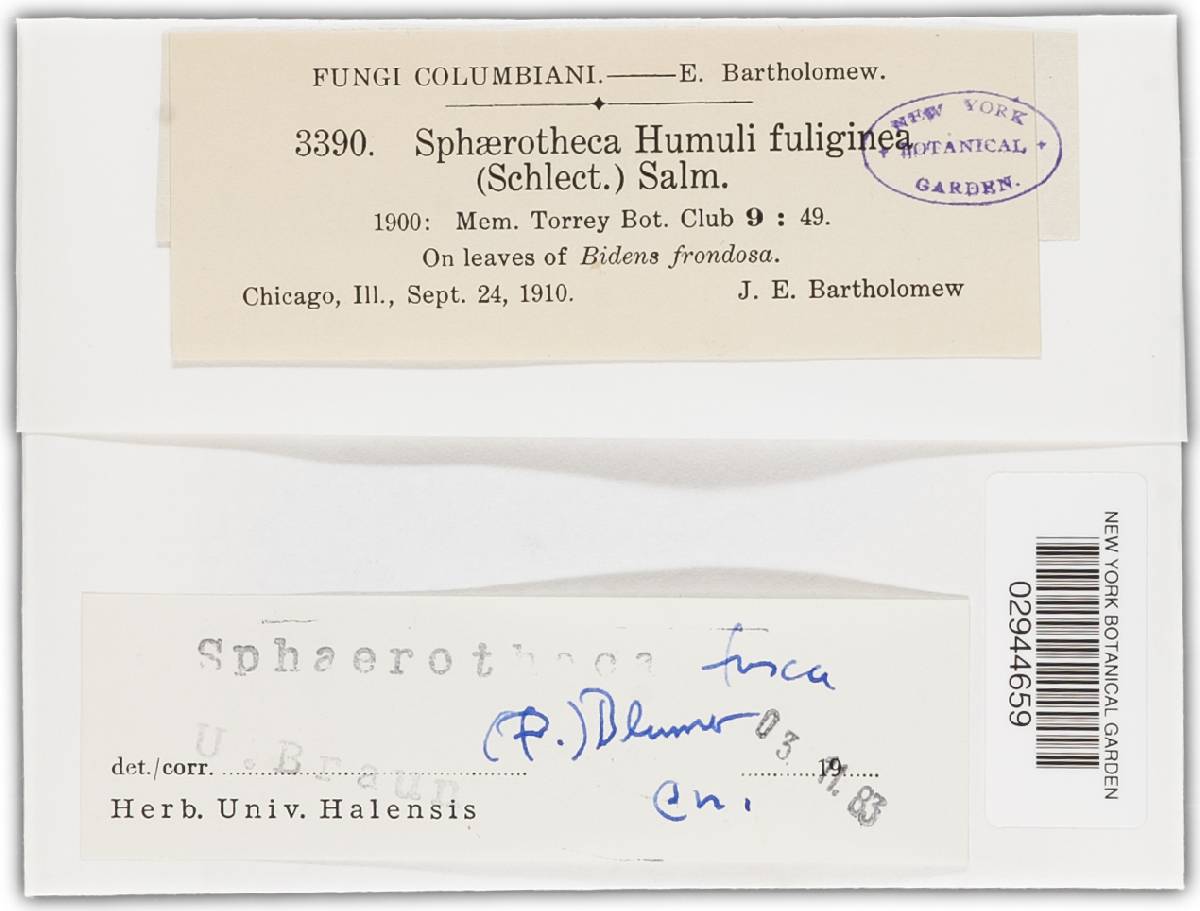 FUNGI COLUMBIANI.——E. Bartholomew.
3390. Sphærotheca Humuli fuliginea
(Schlect.) Salm.
1900: Mem. Torrey Bot. Club 9 : 49.
On leaves of Bidens frondosa.
Chicago, Ill., Sept. 24, 1910. J. E. Bartholomew
NEW YORK
BOTANICAL
GARDEN.
NEW YORK BOTANICAL GARDEN
02944659
Sphaerotheca fusca
(Fr.) Blumer
03. 11. 83
U. Braun
det./corr. .......... 19......
Herb. Univ. Halensis